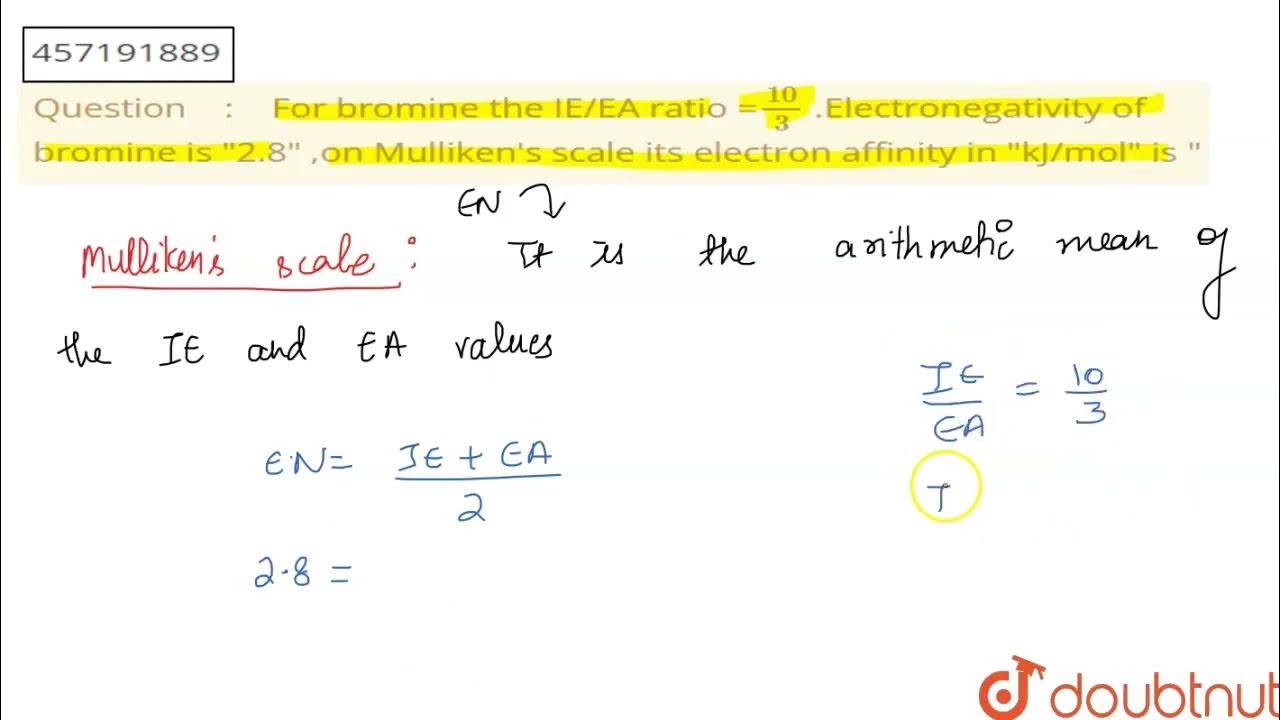 457191889
Question : For bromine the IE/EA ratio = 10/3 .Electronegativity of
bromine is "2.8" ,on Mulliken's scale its electron affinity in "kJ/mol" is "
EN
Mulliken's scale : It is the arithmetic mean of
the IE and EA values
IE/EA = 10/3
E·N = (IE + EA)/2
I
2.8 =
doubtnut